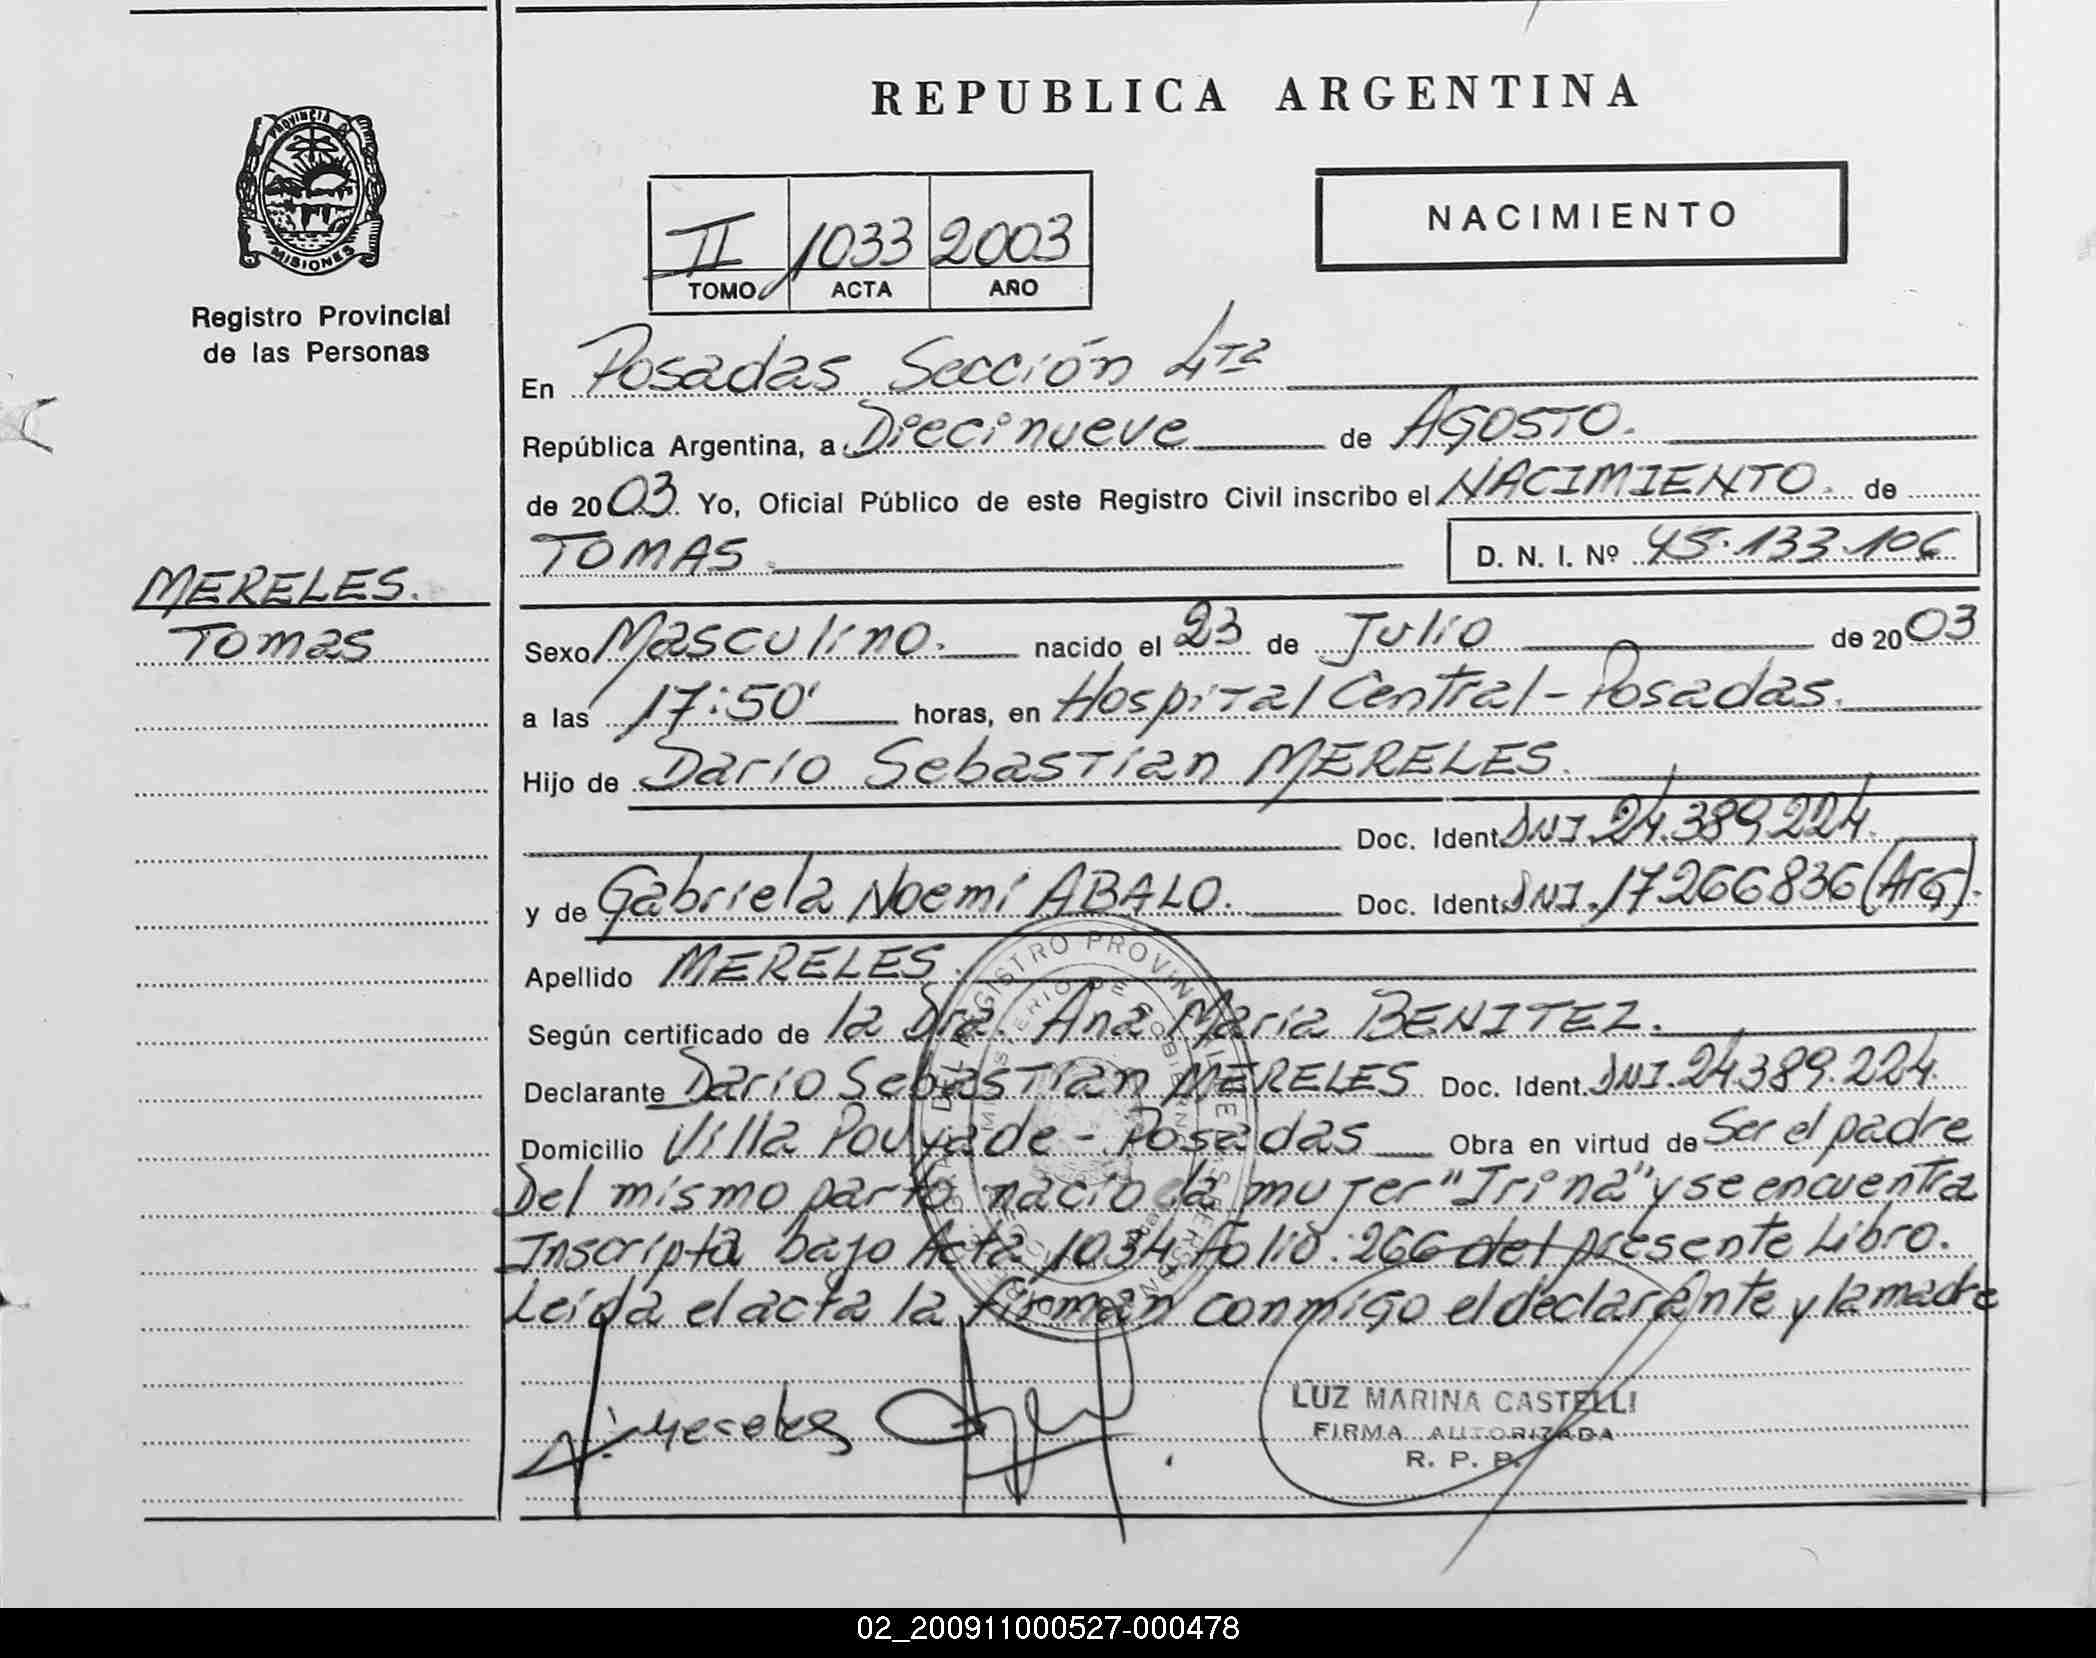 REPUBLICA ARGENTINA
PROVINCIA DE
MISIONES
Registro Provincial
de las Personas
II 1033 2003
TOMO ACTA AÑO
NACIMIENTO
En Posadas Sección 4ta
República Argentina, a Diecinueve de AGOSTO.
de 2003 Yo, Oficial Público de este Registro Civil inscribo el NACIMIENTO. de
TOMAS D. N. I. Nº 45.133.106
MERELES.
Tomas
Sexo Masculino. nacido el 23 de Julio de 2003
a las 17:50' horas, en Hospital Central - Posadas.
Hijo de Darío Sebastian MERELES.
Doc. Ident. DNI. 24.389.224.
y de Gabriela Noemí ABALO. Doc. Ident. DNI. 17266836 (Arg).
Apellido MERELES.
Según certificado de la Dra. Ana María BENITEZ.
Declarante Darío Sebastian MERELES Doc. Ident. DNI. 24389.224.
Domicilio Villa Pouyade - Posadas Obra en virtud de Ser el padre
Del mismo parto nacio la mujer "Irina" y se encuentra
Inscripta bajo Acta 1034 folio: 266 del presente Libro.
Leída el acta la firman conmigo el declarante y la madre
Mereles
LUZ MARINA CASTELLI
FIRMA AUTORIZADA
R. P. P.
02_200911000527-000478